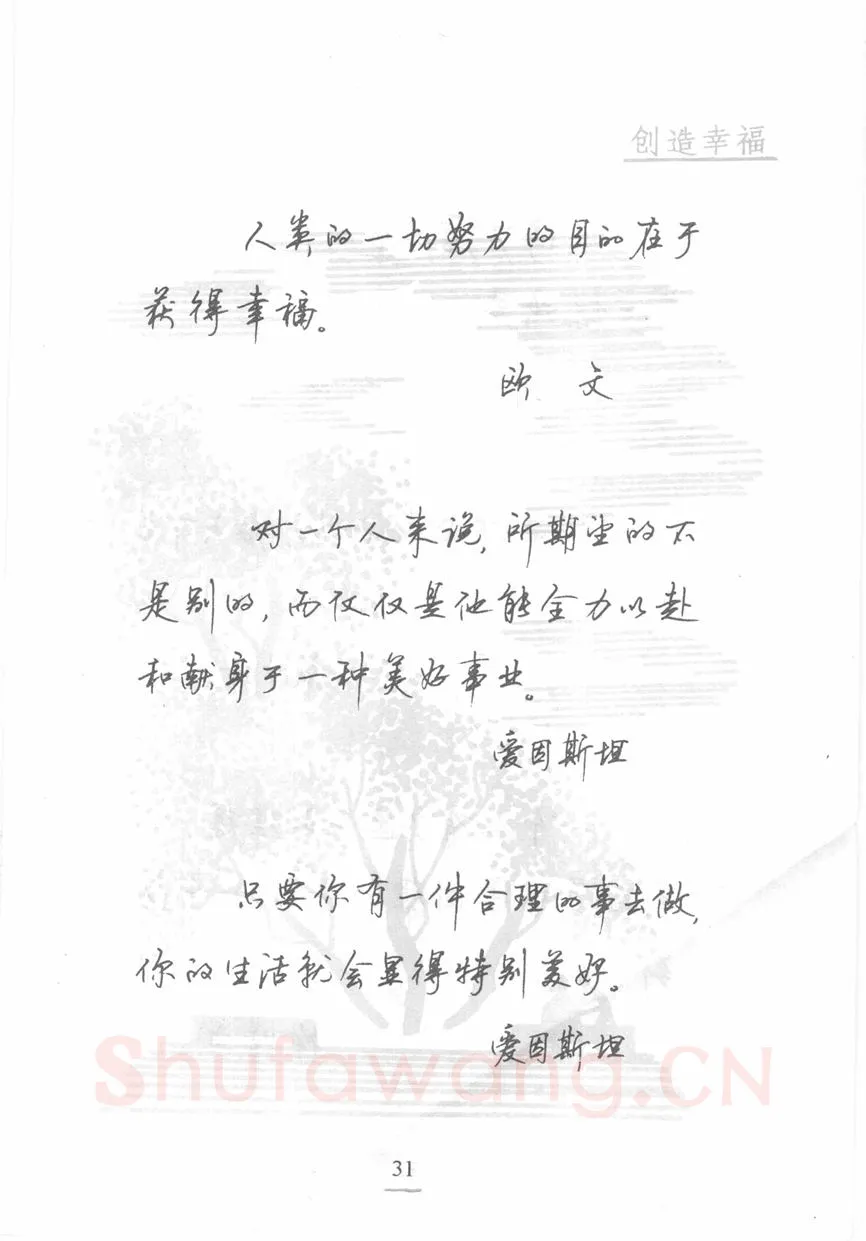 创造幸福
人类的一切努力的目的在于
获得幸福。
欧 文
对一个人来说,所期望的不
是别的,而仅仅是他能全力以赴
和献身于一种美好事业。
爱因斯坦
只要你有一件合理的事去做,
你的生活就会显得特别美好。
爱因斯坦
Shufawang.CN
31